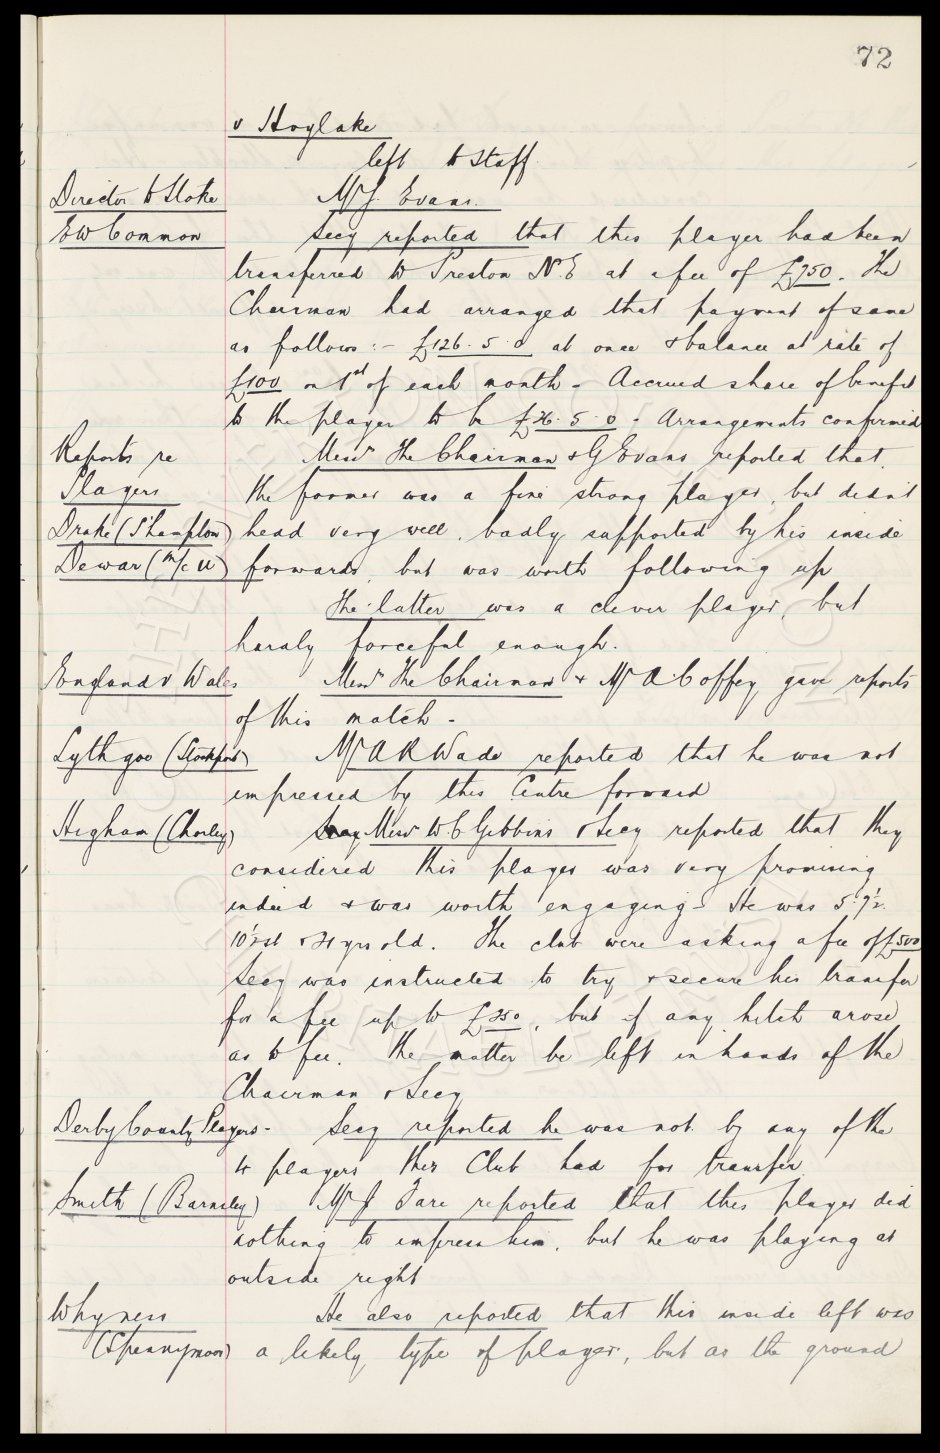 72
v Hoylake
left to staff.
Director to Stoke Mr J. Evans.
E W Common Secy reported that this player had been
transferred to Preston N E at a fee of £750. The
Chairman had arranged that payment of same
as follows:- £126. 5. 0 at once & balance at rate of
£100 on 1st of each month - Accrued share of benefit
to the player to be £26. 5. 0 - Arrangements confirmed
Reports re Messrs The Chairman & G Evans reported that
Players the former was a fine strong player, but didn't
Drake (S'hampton) head very well, badly supported by his inside
Dewar (M/c U) forwards, but was worth following up
The latter was a clever player, but
hardly forceful enough.
England v Wales Messrs The Chairman & Mr A Coffey gave reports
of this match -
Lythgoe (Stockport) Mr A R Wade reported that he was not
impressed by this Centre forward
Higham (Chorley) Messrs W C Gibbins & Secy reported that they
considered this player was very promising
indeed & was worth engaging - He was 5' 9½
10½ st & 21 yrs old. The club were asking a fee of £500
Secy was instructed to try & secure his transfer
for a fee up to £250, but if any hitch arose
as to fee. the matter be left in hands of the
Chairman & Secy
Derby County Players - Secy reported he was not by any of the
4 players this Club had for transfer
Smith (Barnsley) Mr J Fare reported that this player did
nothing to impress him, but he was playing at
outside right
Whyness He also reported that this inside left was
(Spennymoor) a likely type of player, but as the ground